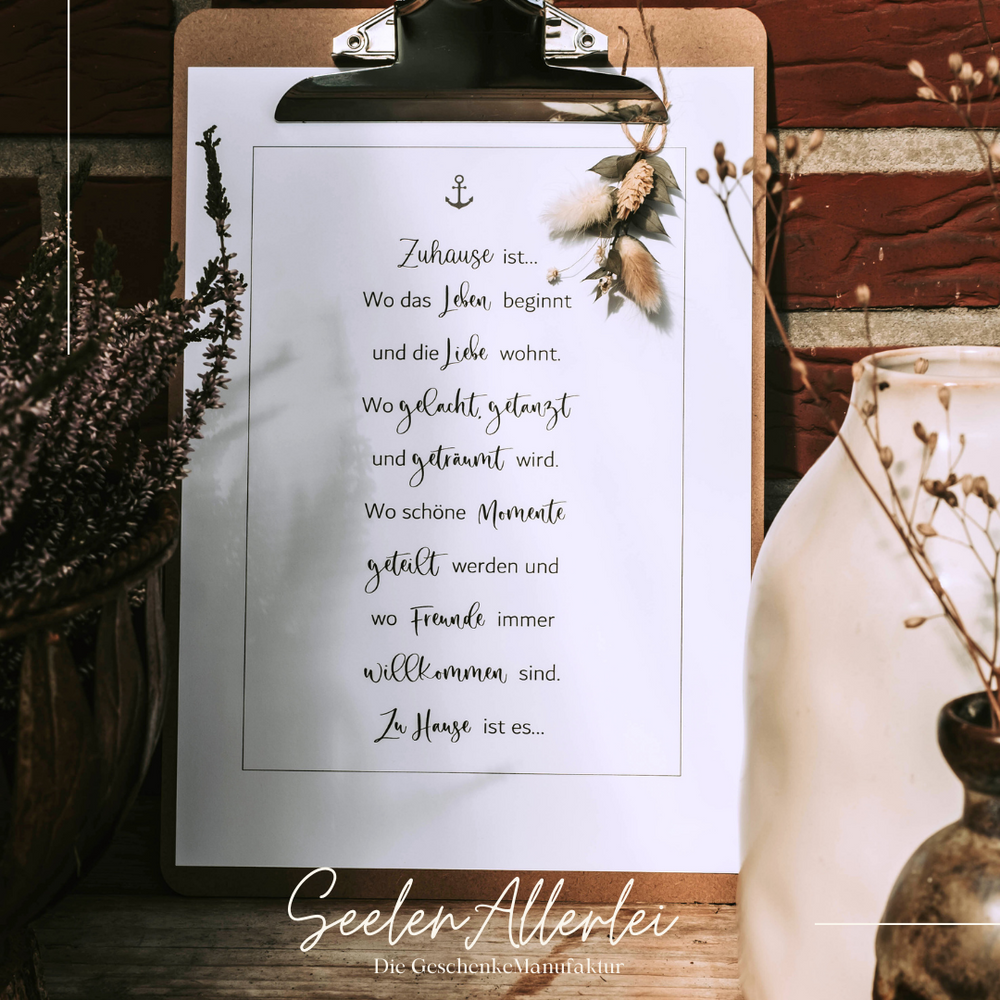 Zuhause ist...
Wo das Leben beginnt
und die Liebe wohnt.
Wo gelacht, getanzt
und geträumt wird.
Wo schöne Momente
geteilt werden und
wo Freunde immer
willkommen sind.
Zu Hause ist es...
SeelenAllerlei
Die GeschenkeManufaktur